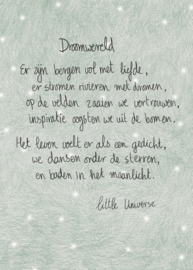 Droomwereld
Er zijn bergen vol met liefde,
er stromen rivieren met dromen,
op de velden zaaien we vertrouwen,
inspiratie oogsten we uit de bomen.
Het leven voelt er als een gedicht,
we dansen onder de sterren,
en baden in het maanlicht.
little Universe